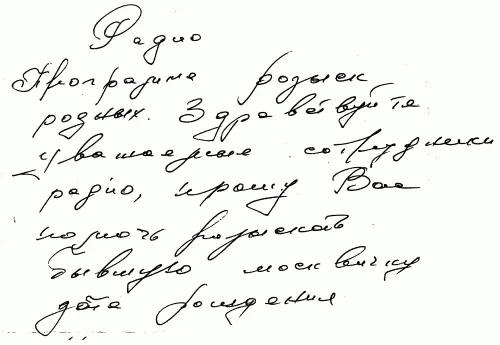 Радио
Программа розыск
родных. Здравствуйте
уважаемые сотрудники
радио, прошу Вас
помочь розыскать
бывшую москвичку
дата рождения